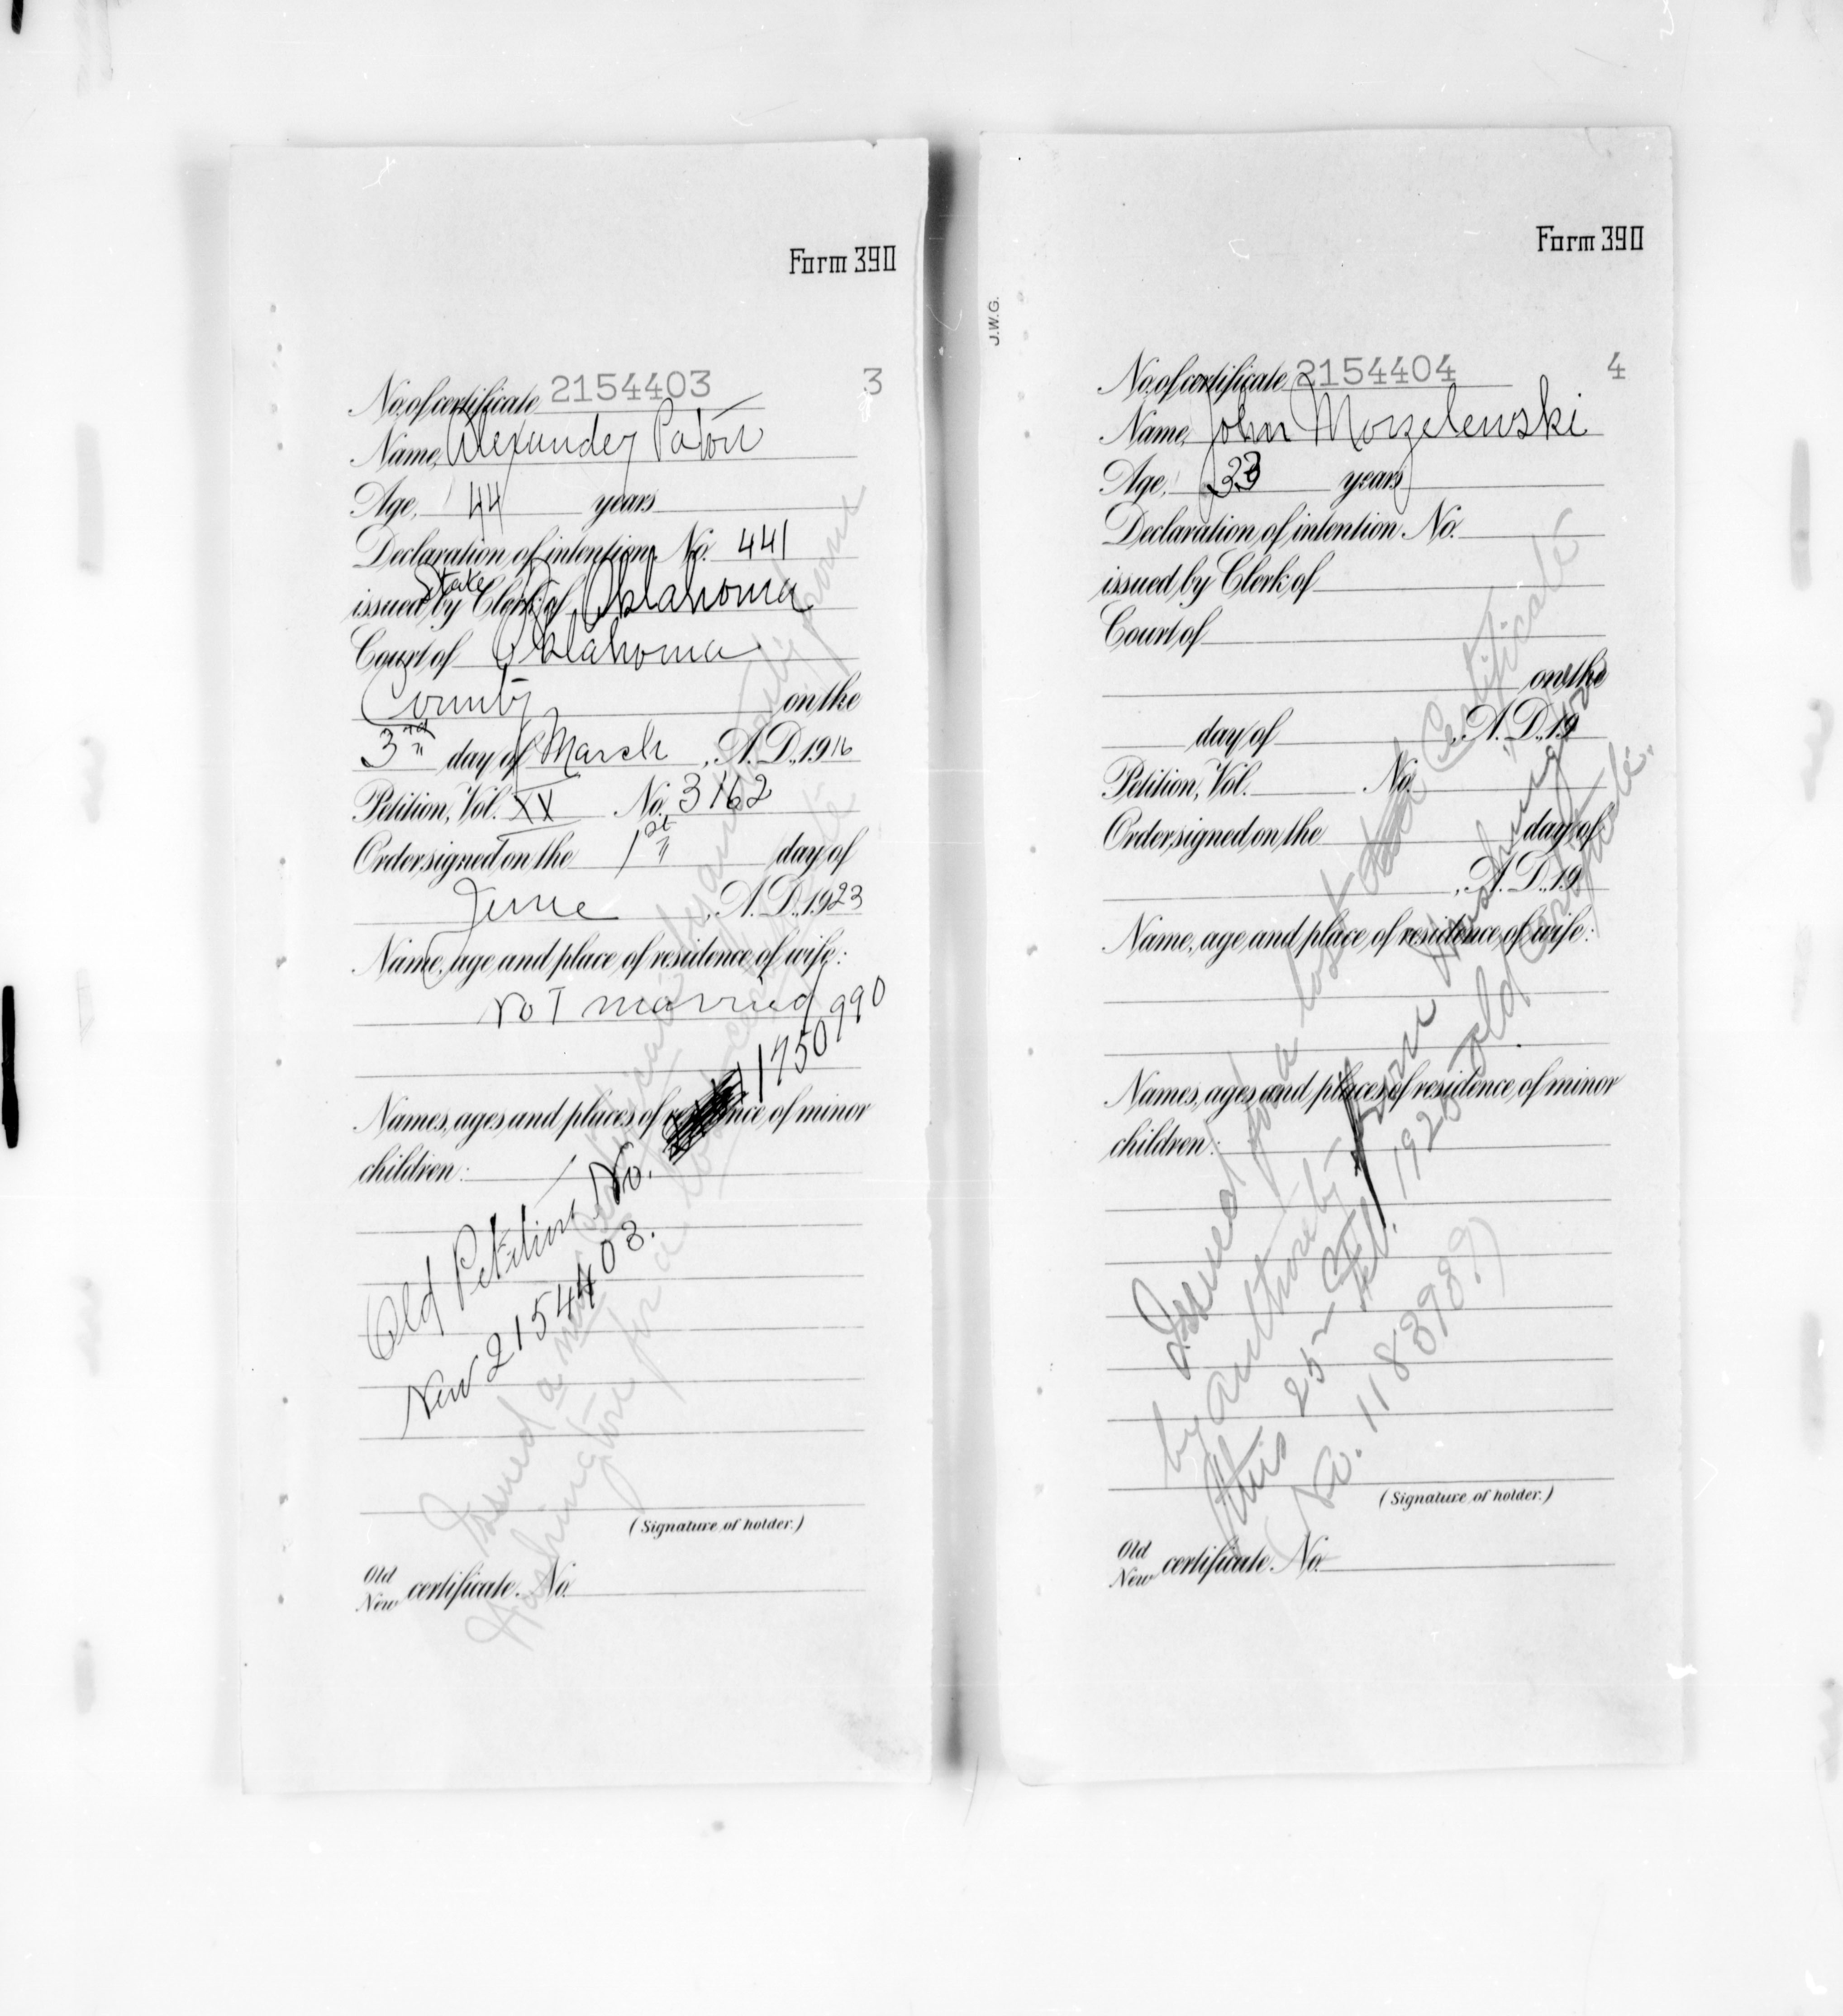 Form 390
No. of certificate 2154403 3
Name, Alexander Paton
Age, 44 years
Declaration of intention, No. 441
issued by Clerk of State of Oklahoma
Court of Oklahoma
County on the
3rd day of March, A. D., 1916
Petition, Vol. XX No. 3162
Order signed on the 1st day of
June, A. D., 1923
Name, age and place of residence of wife:
Not married
Names, ages and places of residence of minor
children:
Old Petition No. 1750990
New 2154403.
Issued a new Certificate by authority from
Washington for a lost certificate
(Signature of holder.)
Old
New certificate, No.
J.W.G.
Form 390
No. of certificate 2154404 4
Name, John Morzelewski
Age, 33 years
Declaration of intention, No.
issued by Clerk of
Court of
on the
day of , A. D., 19
Petition, Vol. No.
Order signed on the day of
, A. D., 19
Name, age and place of residence of wife:
Names, ages and places of residence of minor
children:
Issued for a lost Certificate
by authority from Washington
this 25 Feb. 1926 old Certificate.
(No. 1183989)
(Signature of holder.)
Old
New certificate, No.